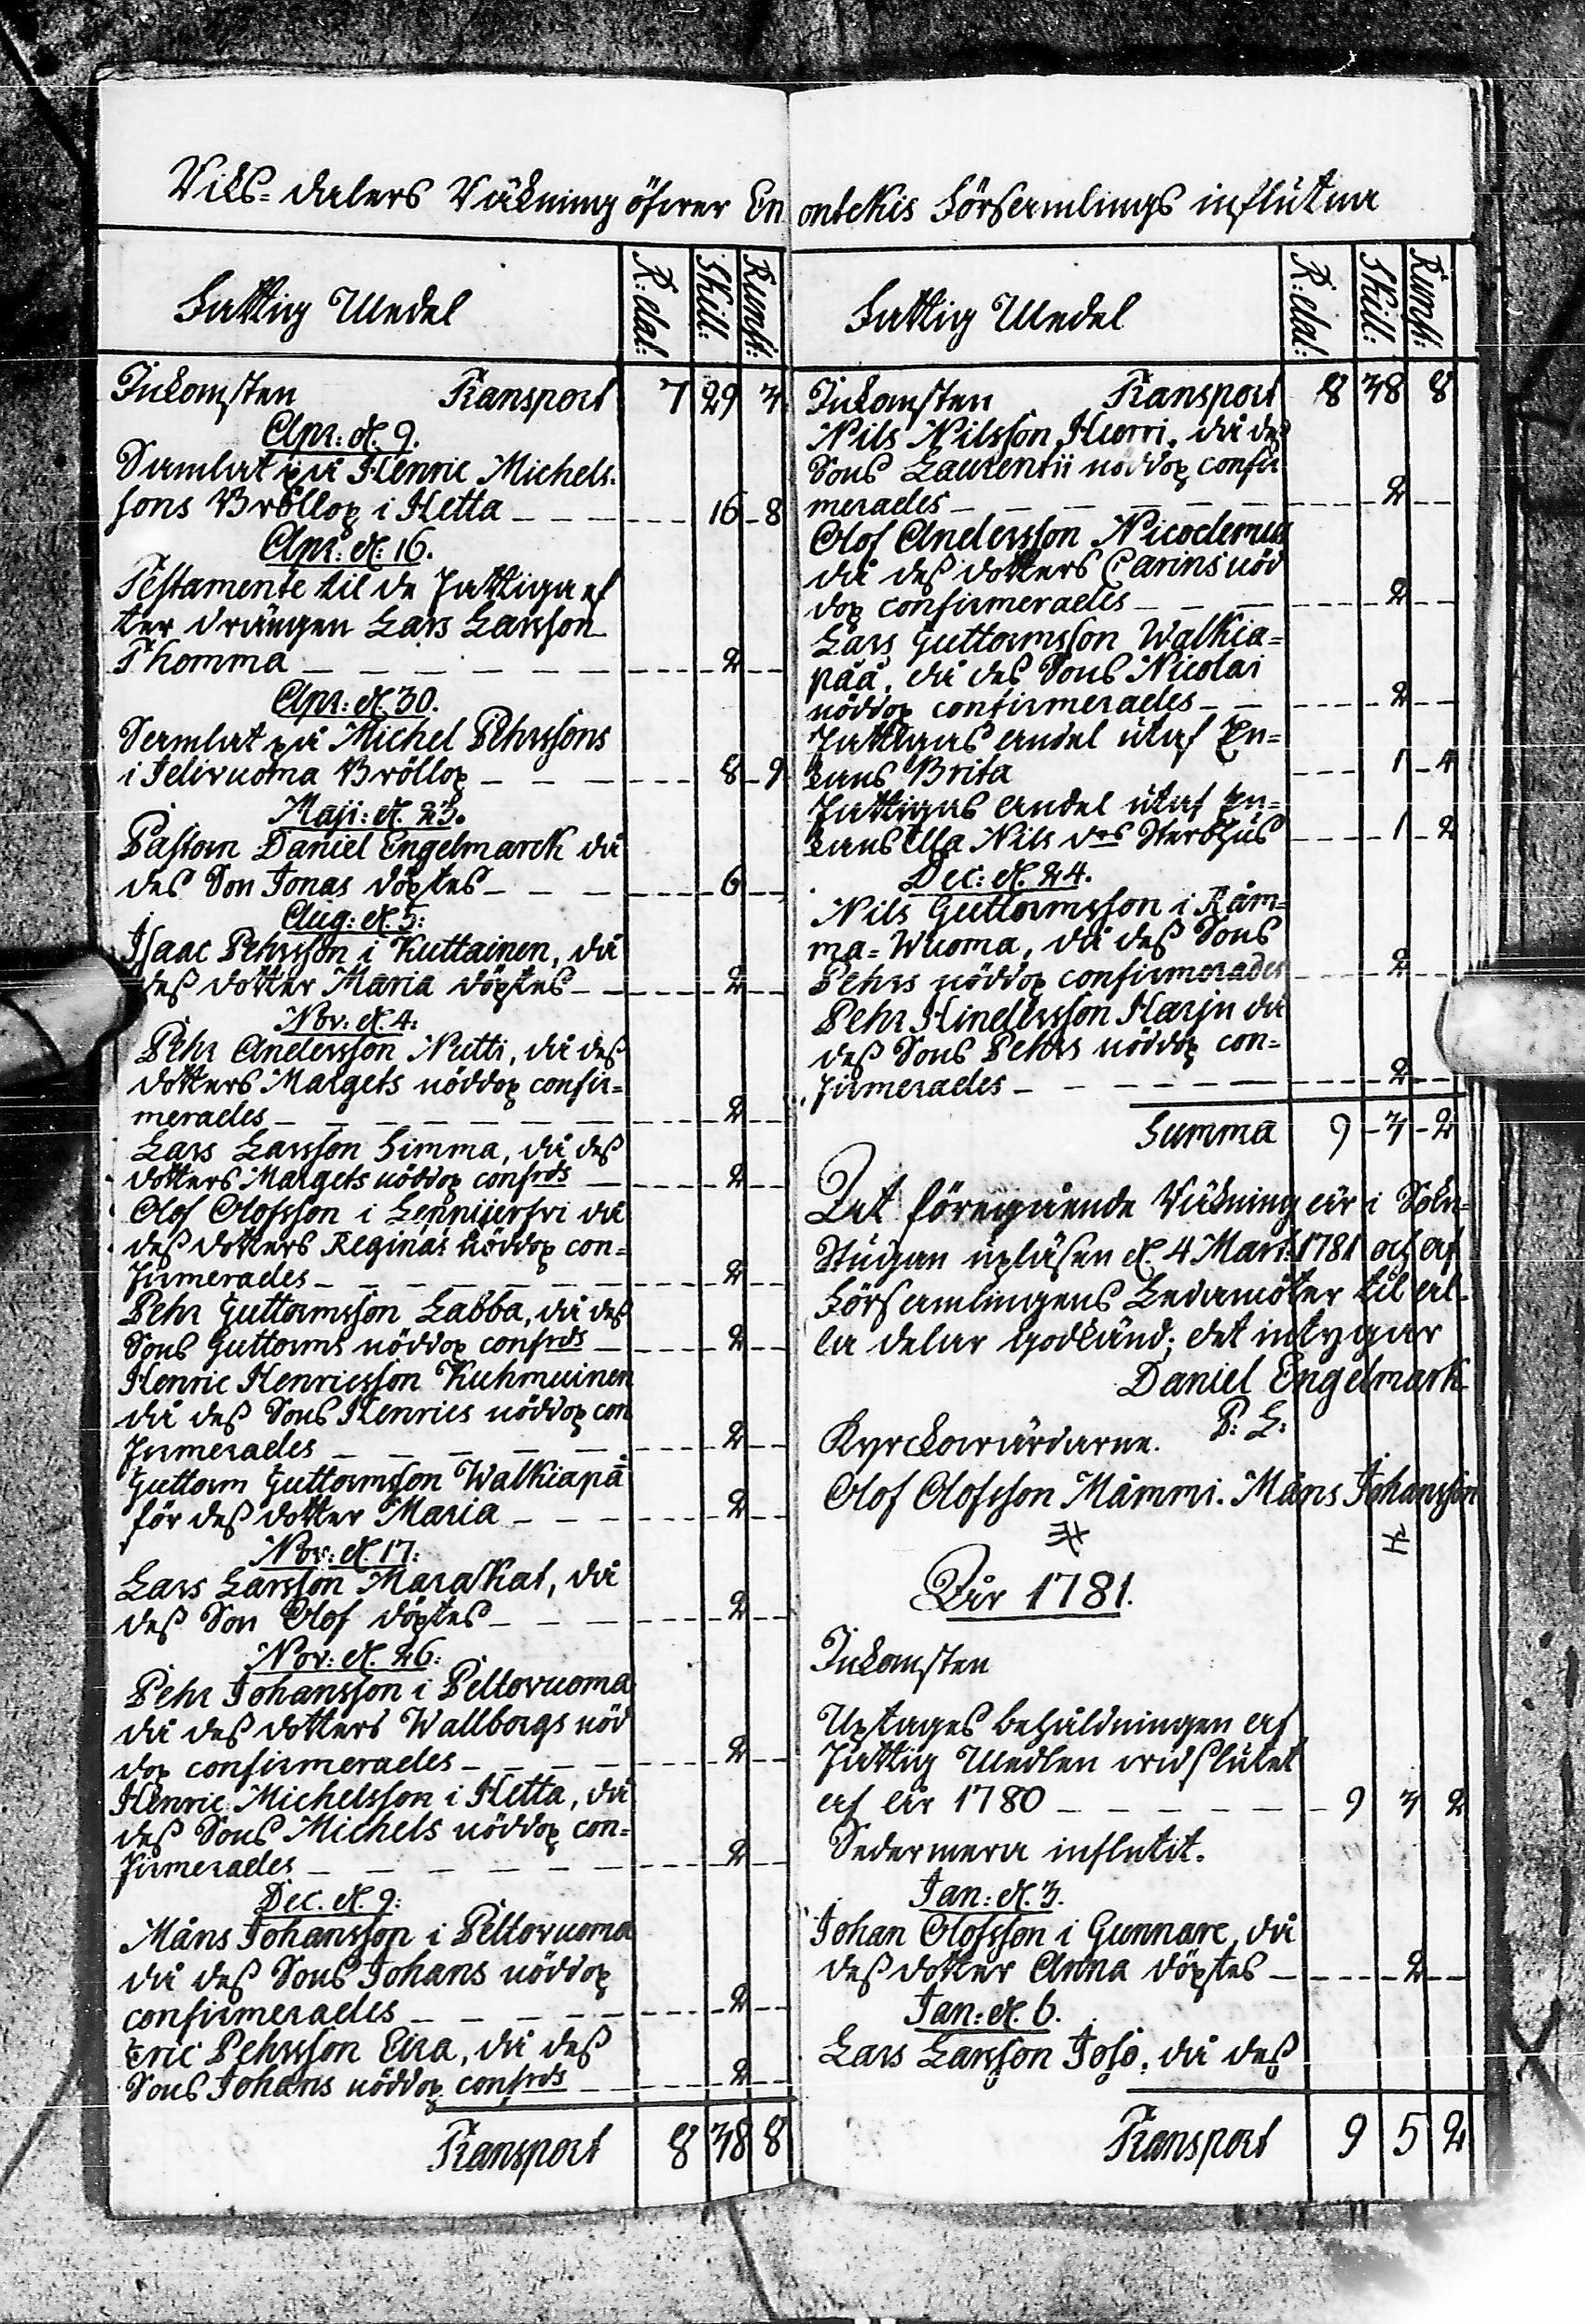 Riks-dalers Räkning öfwer Enontekis Församlings influtna
Fattig Medel
R:dal:
Skill:
Runst:
Inkomsten Transport 7 29 3
Apr: d. 9.
Samlat på Henric Michels-
sons Bröllop i Hetta 16 8
Apr: d. 16.
Testamente til de fattiga ef
ter drängen Lars Larsson
Thomma 2
Apr: d. 30.
Samlat på Michel Pehrssons
i Jelivuoma Bröllop 8 9
Maji: d. 23.
Pastorn Daniel Engelmarck då
des Son Jonas döptes 6
Aug: d. 5:
Isaac Pehrsson i Kuttainen, då
deß dotter Maria döptes 2
Nov: d. 4:
Pehr Andersson Nutti, då deß
dotters Margets nöddop confir-
merades 2
Lars Larsson Simma, då deß
dotters Margets nöddop confrds 2
Olof Olofsson i Lennijerfvi då
deß dotters Reginas nöddop con-
firmerades 2
Pehr Guttormsson Labba, då deß
Sons Guttorms nöddop confrds 2
Henric Henricsson Kuhmuinen
då deß Sons Henrics nöddop con
firmerades 2
Guttorm Guttormsson Walkiapä
för deß dotter Maria 2
Nov: d. 17:
Lars Larsson Marakat, då
deß Son Olof döptes 2
Nov: d. 26:
Pehr Johansson i Peltovuoma
då deß dotters Wallborgs nöd
dop confirmerades 2
Henric Michelsson i Hetta, då
deß Sons Michels nöddop con-
firmerades 2
Dec. d. 9:
Måns Johansson i Peltovuoma
då deß Sons Johans nöddop
confirmerades 2
Eric Pehrsson Eira, då deß
Sons Johans nöddop confrds 2
Transport 8 38 8
Fattig Medel
R:dal:
Skill:
Runst:
Inkomsten Transport 8 38 8
Nils Nilsson Hurri, då deß
Sons Laurentii nöddop confir
merades 2
Olof Andersson Nicodemus
då deß dotters Carins nöd
dop confirmerades 2
Lars Guttormsson Walkia-
pää, då des Sons Nicolai
nöddop confirmerades 2
Fattigas andel utaf En-
kans Brita 1 4
Fattigas andel utaf En-
kans Ella Nils drs Sterbhus 1 2
Dec: d. 24.
Nils Guttormsson i Råm-
ma-Wuoma, då deß Sons
Pehrs nöddop confirmerades 2
Pehr Hindersson Harju då
deß Sons Pehrs nöddop con-
firmerades 2
Summa 9 3 2
Det föregående Räkning är i Sokn-
Stugan upläsen d. 4 Mart: 1781 och af
Församlingens Ledamöter til al-
la delar godkänd; det intygar
Daniel Engelmark
P: L:
Kyrckowärdarne.
Olof Olofsson Mämmi. Måns Johansson
Åår 1781.
Inkomsten
Uptages behåldningen af
Fattig Medlen wid slutet
af år 1780 9 3 2
Sedermera influtit.
Jan: d. 3.
Johan Olofsson i Gunnare, då
deß dotter Anna döptes 2
Jan: d. 6.
Lars Larsson Joso, då deß
Transport 9 5 2